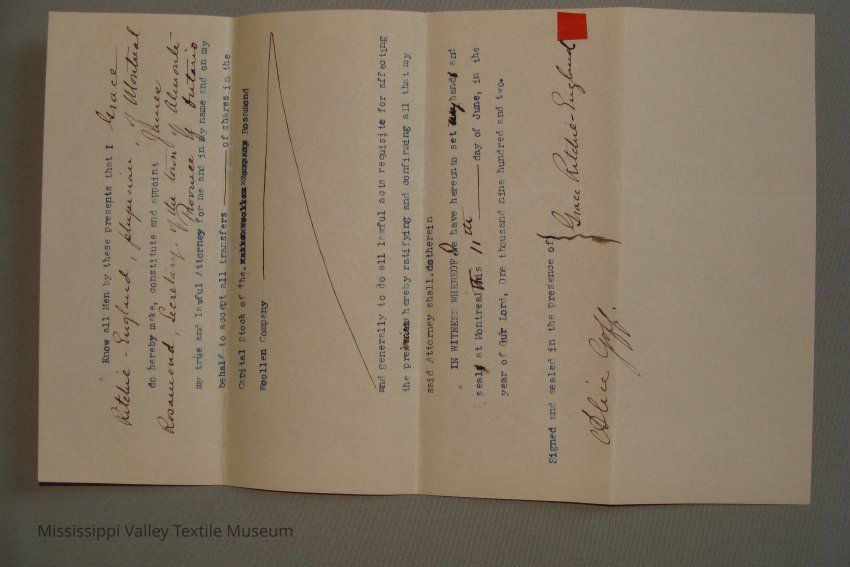 Know all Men by these presents that I Grace
Ritchie-England, physician, of Montreal
do hereby make, constitute and appoint James
Rosamond, Secretary, of the town of Almonte
Province of Ontario
my true and lawful Attorney for me and in my name and on my
behalf to accept all transfers of shares in the
Capital Stock of the Rosamond
Woollen Company
and generally to do all lawful acts requisite for affecting
the premises hereby ratifying and confirming all that my
said Attorney shall.do therein
IN WITNESS WHEREOF I have hereunto set my hand and
seal at Montreal this 11 the day of June, in the
year of Our Lord, One thousand nine hundred and two.
Signed and sealed in the presence of
Grace Ritchie-England
Alice Goff.
Mississippi Valley Textile Museum